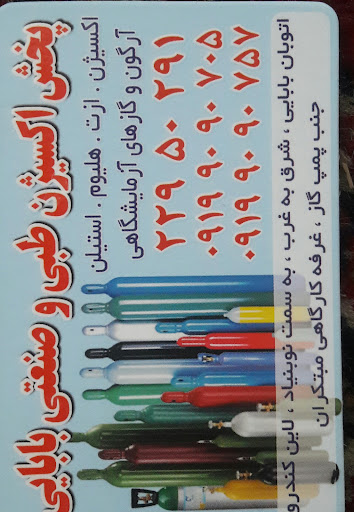 پخش اکسیژن طبی و صنعتی بابایی
اکسیژن . ازت . هلیوم . استیلن
آرگون و گازهای آزمایشگاهی
۲۲۹ ۵۰ ۲۹۱
۰۹۱۹ ۹۰۹۰ ۷۰۵
۰۹۱۹ ۹۰۹۰ ۷۵۷
اتوبان بابایی ، شرق به غرب ، به سمت نوبنیاد ، لاین کندرو
جنب پمپ گاز ، غرفه کارگاهی مبتکران